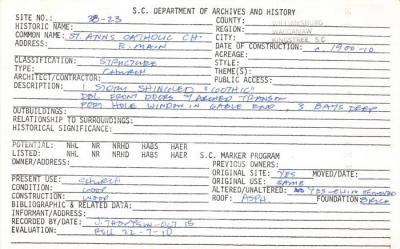 S.C. DEPARTMENT OF ARCHIVES AND HISTORY
SITE NO. 38-23 COUNTY: WILLIAMSBURG
HISTORIC NAME: REGION: WACCAMAW
COMMON NAME: ST. ANNS CATHOLIC CH. CITY: KINGSTREE S.C.
ADDRESS: E. MAIN DATE OF CONSTRUCTION: c. 1900-10
ACREAGE:
CLASSIFICATION: STRUCTURE STYLE:
TYPE: CHURCH THEME(S):
ARCHITECT/CONTRACTOR: PUBLIC ACCESS:
DESCRIPTION: 1 STORY SHINGLED "GOTHIC"
DBL FRONT DOORS W/ ARCHED TRANSOM
PORT HOLE WINDOW IN GABLE END, 3 BAYS DEEP
OUTBUILDINGS:
RELATIONSHIP TO SURROUNDINGS:
HISTORICAL SIGNIFICANCE:
POTENTIAL: NHL NR NRHD HABS HAER
LISTED: NHL NR NRHD HABS HAER S.C. MARKER PROGRAM
OWNER/ADDRESS: PREVIOUS OWNERS:
ORIGINAL SITE: YES MOVED/DATE:
PRESENT USE: CHURCH ORIGINAL USE: SAME
CONDITION: GOOD ALTERED/UNALTERED: YES
CONSTRUCTION: WOOD ROOF: ASPH FOUNDATION: BRICK
BIBLIOGRAPHIC & RELATED DATA:
INFORMANT/ADDRESS:
RECORDED BY/DATE:
EVALUATION: